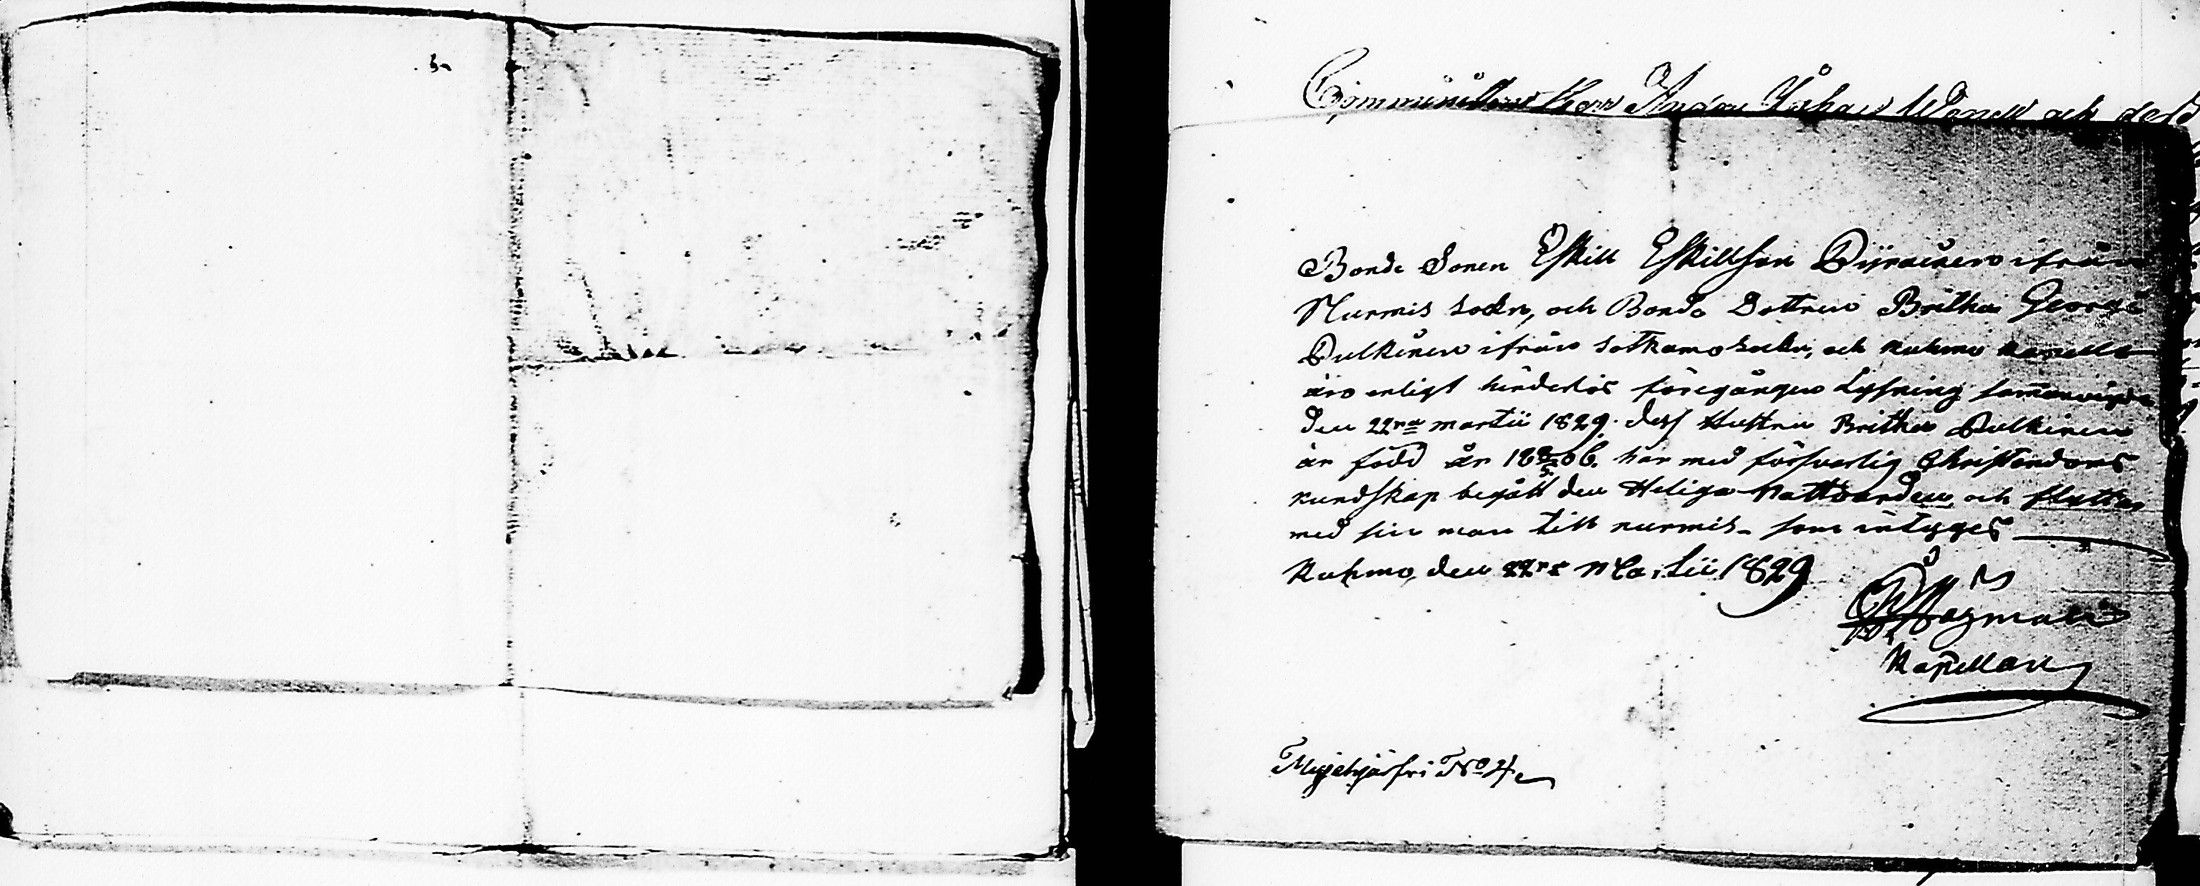 5
Bonde Sonen Eskill Eskillson Pyykäinen ifrån
Nurmis Sokn, och Bonde Dottren Britha Georgs
Pulkinen ifrån Sotkamo Sokn, och Kuhmo Kapell
äro enligt hinderlös föregången Lysning sammanvigde
den 22ra martii 1829. dess Hustru Britha Pulkinen
är född år 1806. har med försvarlig Christendoms
kundskap begått den Heliga Nattvarden och flyttar
med sin man till nurmis. som intyges
Kuhmo den 22ra Martii 1829
Hagman
Kapellan
No 4